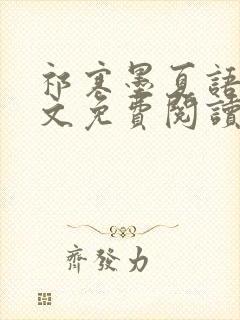 祁寒墨夏語
文免費閱讀
齊發力